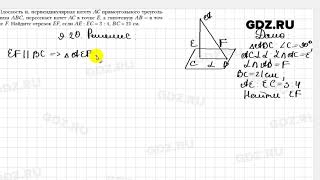 Плоскость α, перпендикулярная катету AC прямоугольного треуголь-
ника ABC, пересекает катет AC в точке E, а гипотенузу AB — в точ-
ке F. Найдите отрезок EF, если AE : EC = 3 : 4, BC = 21 см.
GDZ.RU
9.20 Решение
Дано
EF || BC => △AEF
△ABC ∠C = 90°
α ⊥ AC α ∩ AC = E
α ∩ AB = F
BC = 21 см,
AE : EC = 3 : 4
Найти: EF
A
E
F
C
α
B
GDZ.RU